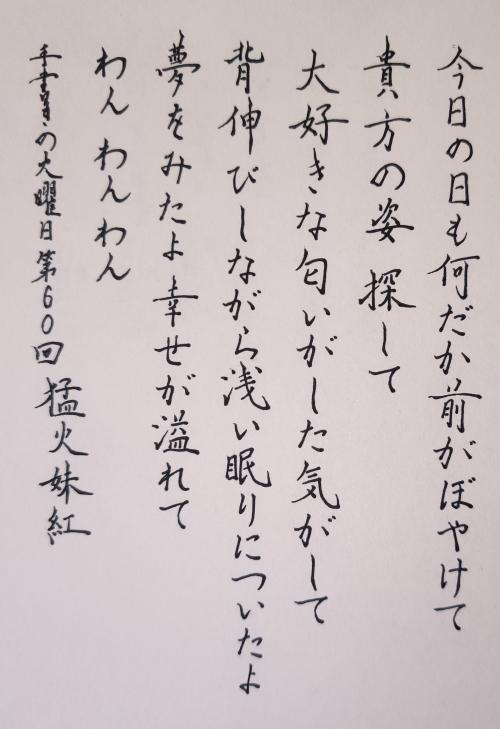 今日の日も何だか前がぼやけて
貴方の姿 探して
大好きな匂いがした気がして
背伸びしながら浅い眠りについたよ
夢をみたよ 幸せが溢れて
わん わん わん
手書きの火曜日第60回 猛火妹紅